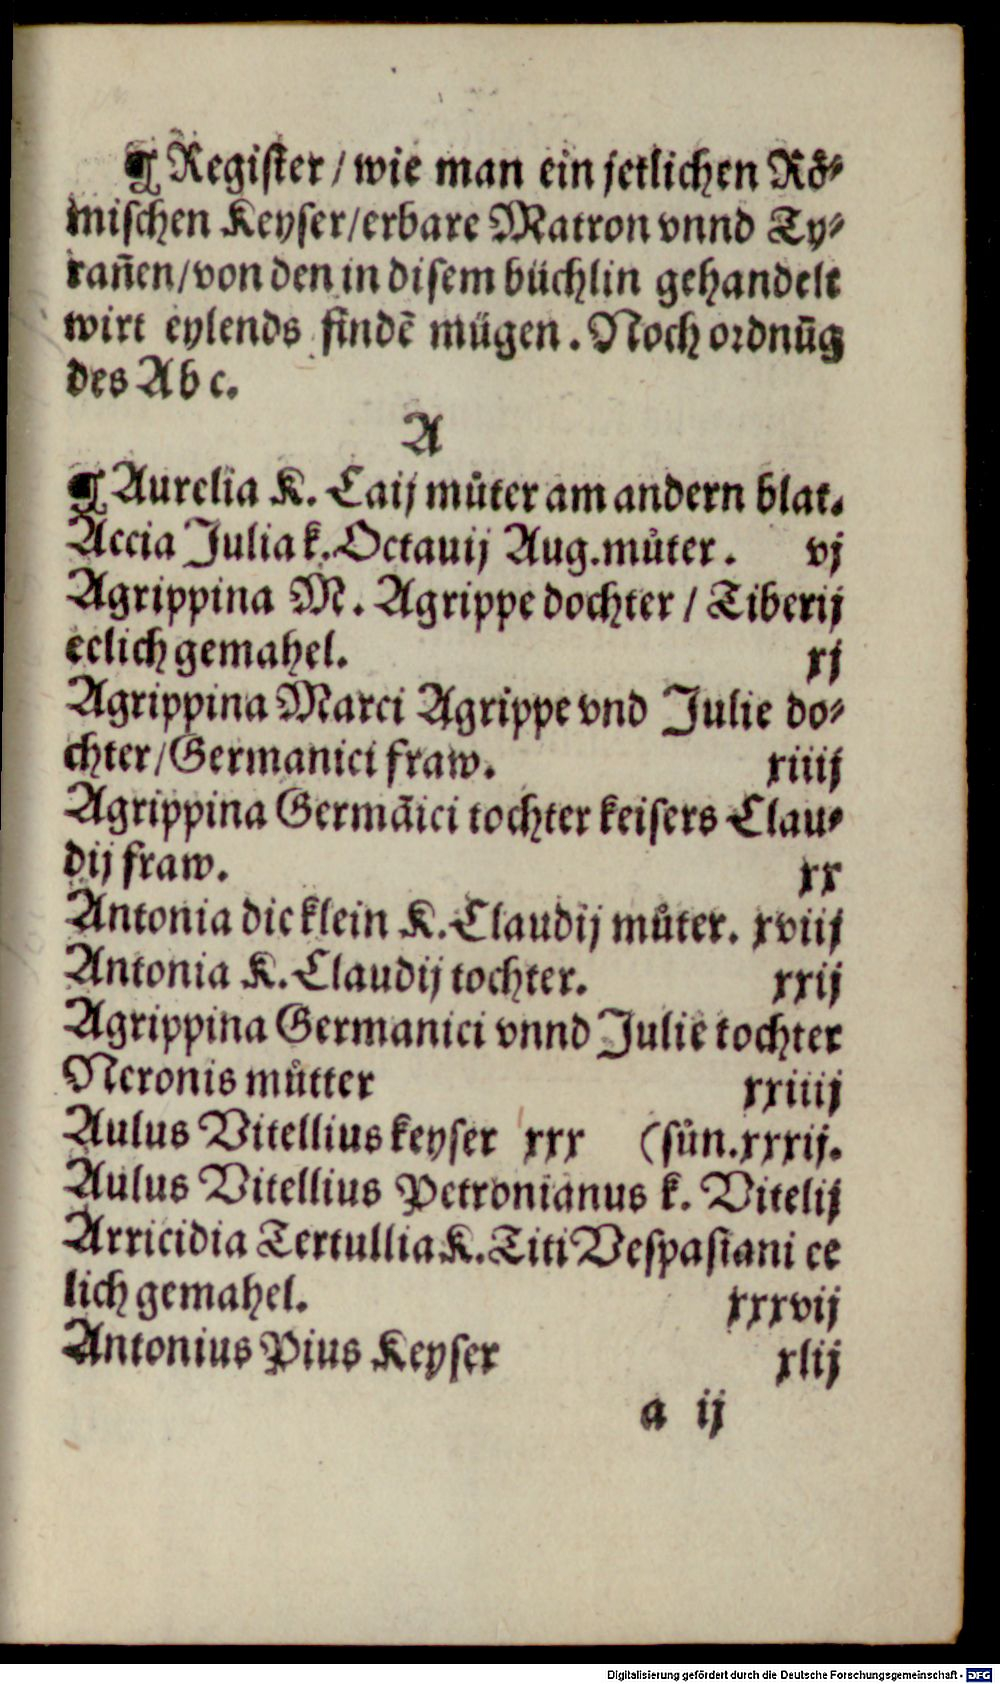 ¶ Register / wie man ein jetlichen Rö⸗
mischen Keyser/erbare Matron vnnd Ty⸗
rañen/von den in disem büchlin gehandelt
wirt eylends findē mügen. Noch ordnūg
des Ab c.
A
¶ Aurelia K. Caij můter am andern blat.
Accia Julia k. Octauij Aug. můter. vj
Agrippina M. Agrippe dochter / Tiberij
eelich gemahel. xj
Agrippina Marci Agrippe vnd Julie do⸗
chter/Germanici fraw. xiiij
Agrippina Germāici tochter keisers Clau⸗
dij fraw. xx
Antonia die klein K. Claudij můter. xviij
Antonia K. Claudij tochter. xxij
Agrippina Germanici vnnd Julie tochter
Neronis můtter xxiiij
Aulus Vitellius keyser xxx (sůn. xxxij.
Aulus Vitellius Petronianus k. Vitelij
Arricidia Tertullia K. Titi Vespasiani ee
lich gemahel. xxxvij
Antonius Pius Keyser xlij
a ij
Digitalisierung gefördert durch die Deutsche Forschungsgemeinschaft - DFG